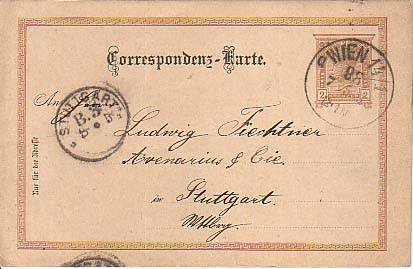 Correspondenz-Karte.
WIEN
STUTTGART
An
Ludwig Fiechtner
Avenarius & Cie.
in Stuttgart.
Nur für die Adresse
2
2